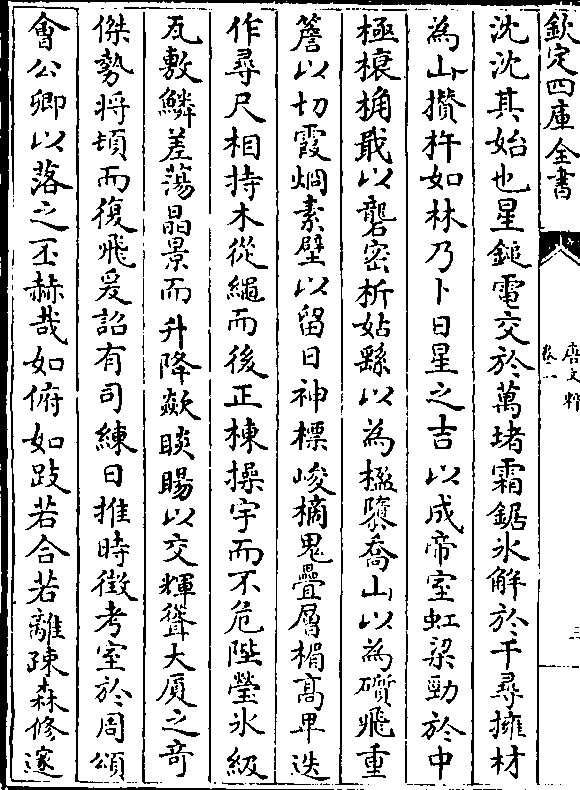 欽定四庫全書
唐文粹
卷一
三
沈沈其始也星鎚電交於萬堵霜鋸氷解於千尋擁材
為山攢杵如林乃卜日星之吉以成帝室虹梁勁於中
極榱桷戢以礱密析姑繇以為楹隳喬山以為礩飛重
簷以切霞烱素壁以留日神標峻樀鬼疊層楣髙卑迭
作尋尺相持木從繩而後正棟操宇而不危陛瑩氷級
瓦敷鱗差蕩晶景而升降歘睒賜以交輝聳大厦之竒
傑勢将頓而復飛爰詔有司練日推時徴考室於周頌
會公卿以落之丕赫哉如俯如跂若合若離踈森修邃